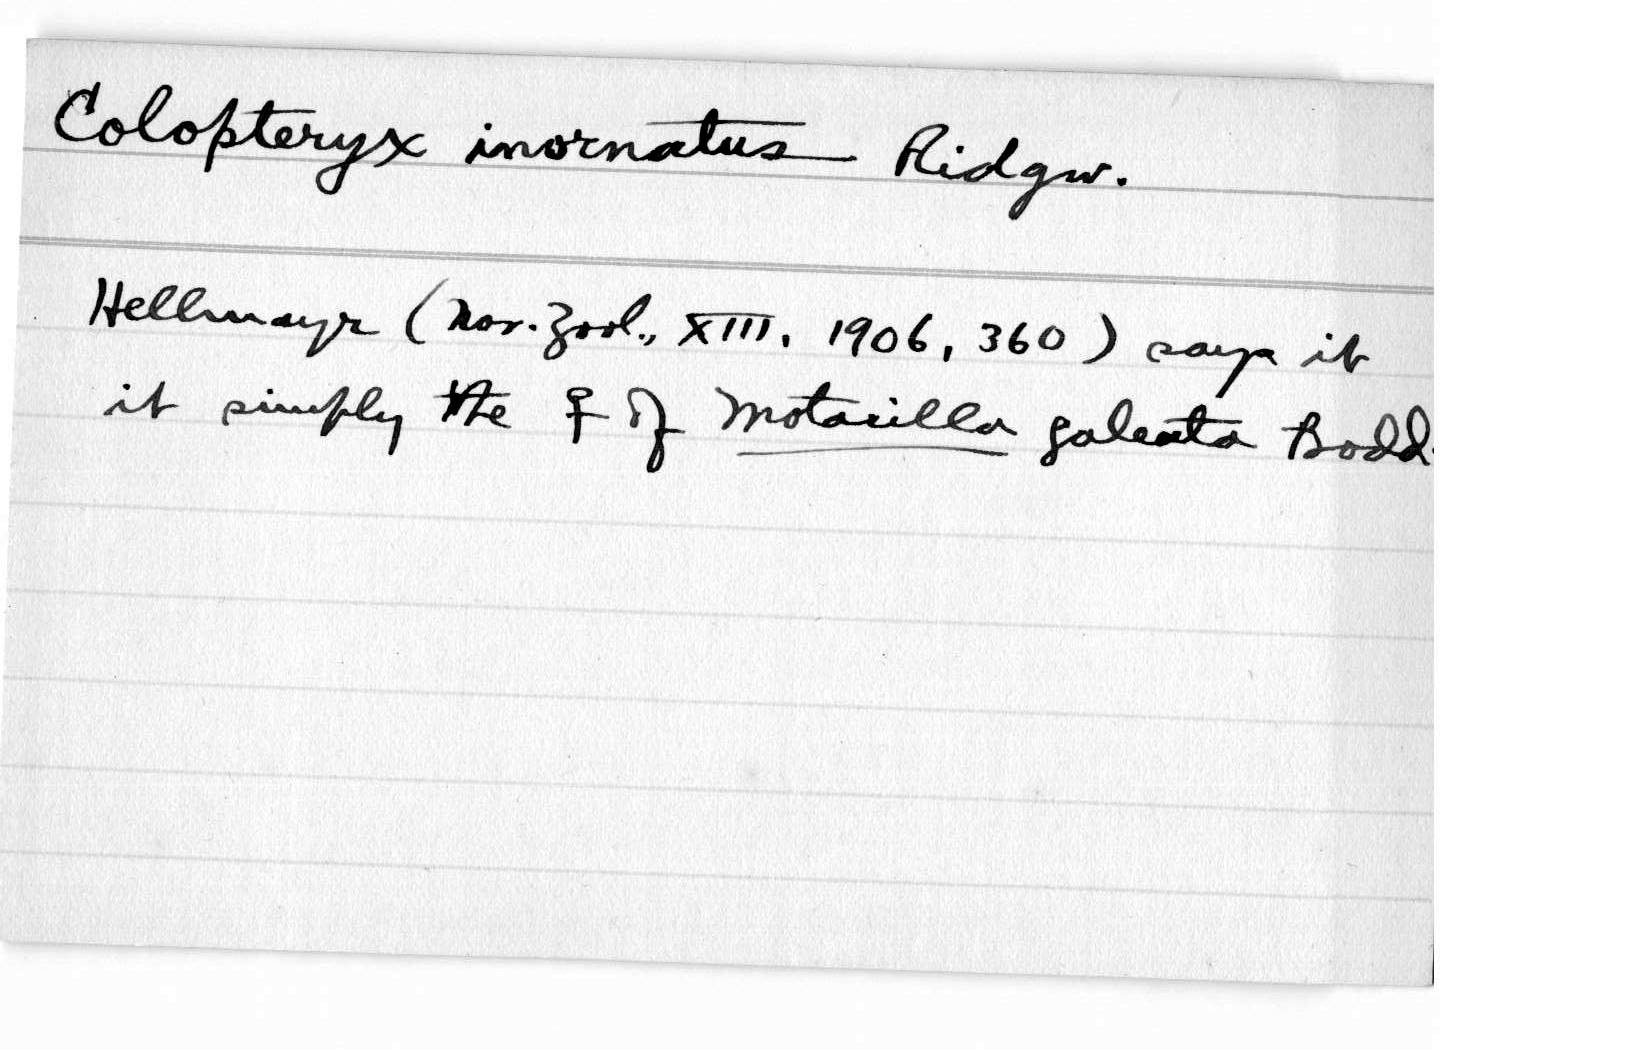 Colopteryx inornatus Ridgw.
Hellmayr (Nov. Zool., XIII, 1906, 360) says it
it simply the ♀ of Motacilla galeata Bodd.